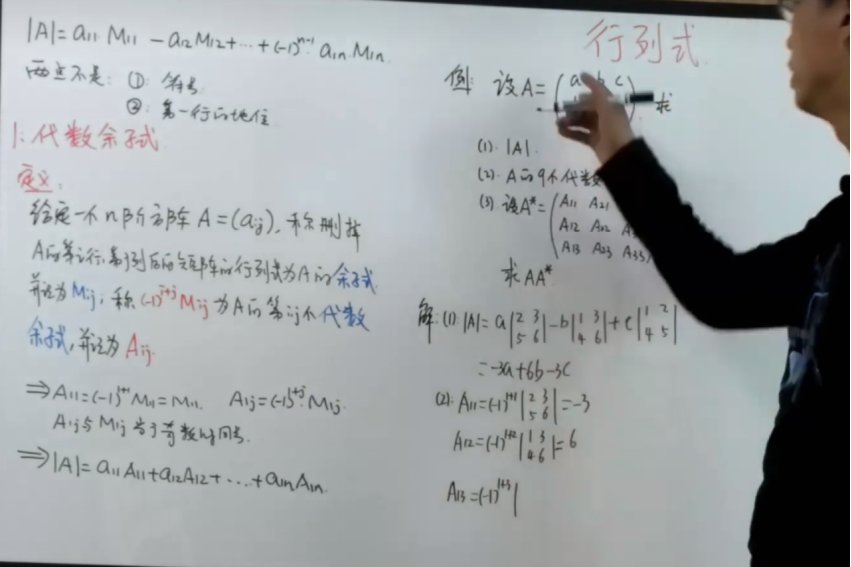 |A| = a₁₁ M₁₁ - a₁₂ M₁₂ + ⋯ + (-1)ⁿ⁻¹ a₁ₙ M₁ₙ.
两点不足: ①: 符号
②: 第一行的地位
1. 代数余子式.
定义:
给定一个n阶方阵 A=(aᵢⱼ), 称删掉
A的第i行, 第j列后的矩阵的行列式为A的余子式.
并记为 Mᵢⱼ, 称 (-1)ⁱ⁺ʲ Mᵢⱼ 为A的第ij个代数
余子式, 并记为 Aᵢⱼ.
⇒ A₁₁ = (-1)¹⁺¹ M₁₁ = M₁₁. A₁ⱼ = (-1)¹⁺ʲ M₁ⱼ.
A₁ⱼ与M₁ⱼ当j奇数时同号.
⇒ |A| = a₁₁A₁₁ + a₁₂A₁₂ + … + a₁ₙA₁ₙ.
行列式.
例: 设 A = ( a b c
), 求
(1). |A|.
(2). A的9个代数
(3). 设A* = ( A₁₁ A₂₁
A₁₂ A₂₂
A₁₃ A₂₃ A₃₃ )
求 AA*.
解: (1). |A| = a |2 3| - b |1 3| + c |1 2|
|5 6| |4 6| |4 5|
= -3a+6b-3c
(2): A₁₁ = (-1)¹⁺¹ |2 3| = -3
|5 6|
A₁₂ = (-1)¹⁺² |1 3| = 6
|4 6|
A₁₃ = (-1)¹⁺³ |